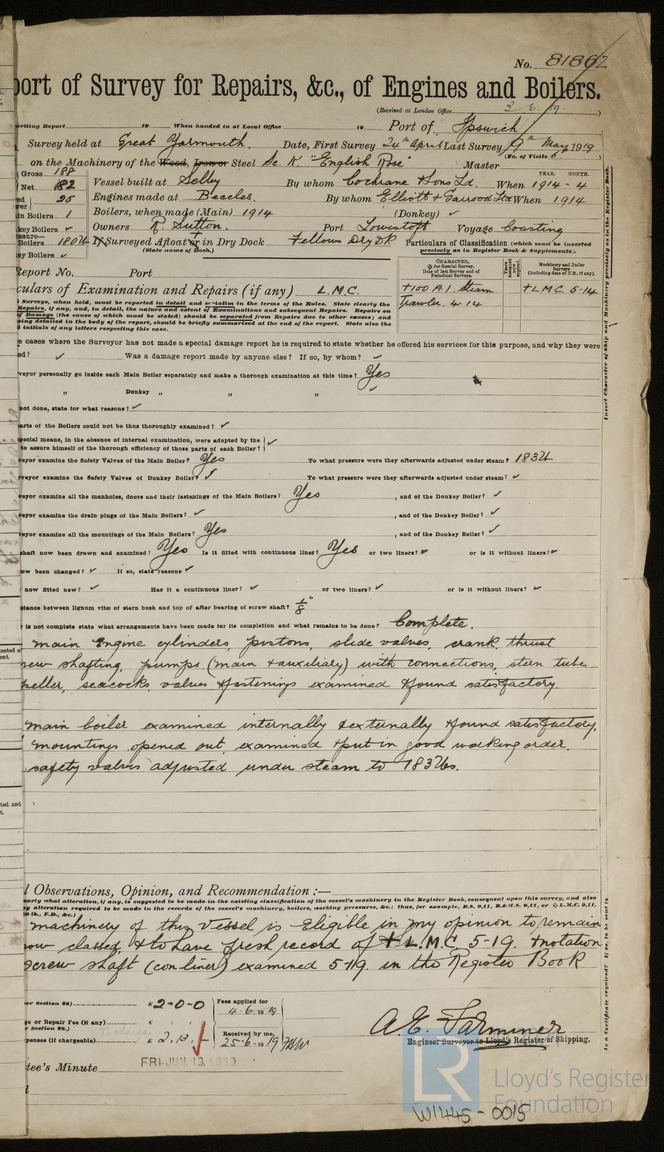 No. 81862
port of Survey for Repairs, &c., of Engines and Boilers.
(Received at London Office 3.6.19.
writing Report 19 When handed in at Local Office 19 Port of Ipswich
Survey held at Great Yarmouth. Date, First Survey 24th April Last Survey 9th May 1919
(No. of Visits 5
on the Machinery of the Wood, Iron or Steel Sc. K. "English Rose" Master
Gross 188
Net 82
Vessel built at Selby By whom Cochrane & Sons Ld. When 1914-4
YEAR. MONTH.
25 Engines made at Beccles. By whom Elliott & Garrood Ltd When 1914
in Boilers 1 Boilers, when made (Main) 1914 (Donkey) ✓
key Boilers ✓ Owners R. Sutton. Port Lowestoft Voyage Coasting
Boilers 180 lb If Surveyed Afloat or in Dry Dock Fellows Dry Dk
(State name of Dock.)
Particulars of Classification (which must be inserted precisely as in Register Book & Supplements).
ey Boilers ✓
Report No. Port
CHARACTER,
Machinery and Boiler Surveys
culars of Examination and Repairs (if any) L.M.C.
+100 A.1. Steam +L.M.C. 5-14
Trawler. 4.14
Surveys, when held, must be reported in detail and seriatim in the terms of the Rules. State clearly the
Repairs, if any, and, in detail, the nature and extent of Examinations and subsequent Repairs. Repairs on
of Damage (the cause of which must be stated) should be separated from Repairs due to other causes; and
being detailed in the body of the report, should be briefly summarised at the end of the report. State also the
initials of any letters respecting this case.
cases where the Surveyor has not made a special damage report he is required to state whether he offered his services for this purpose, and why they were
ed? ✓ Was a damage report made by anyone else? If so, by whom? ✓
veyor personally go inside each Main Boiler separately and make a thorough examination at this time? Yes
" Donkey " " " ✓
not done, state for what reasons? ✓
parts of the Boilers could not be thoroughly examined? ✓
special means, in the absence of internal examination, were adopted by the
to assure himself of the thorough efficiency of those parts of each Boiler? ✓
veyor examine the Safety Valves of the Main Boiler? Yes To what pressure were they afterwards adjusted under steam? 183 lb
veyor examine the Safety Valves of Donkey Boiler? ✓ To what pressure were they afterwards adjusted under steam? ✓
veyor examine all the manholes, doors and their fastenings of the Main Boilers? Yes , and of the Donkey Boiler? ✓
veyor examine the drain plugs of the Main Boilers? ✓ , and of the Donkey Boiler? ✓
veyor examine all the mountings of the Main Boilers? Yes , and of the Donkey Boiler? ✓
shaft now been drawn and examined? Yes Is it fitted with continuous liner? Yes or two liners? ✓ or is it without liners? ✓
ow been changed? ✓ If so, state reasons ✓
now fitted new? ✓ Has it a continuous liner? ✓ or two liners? ✓ or is it without liners? ✓
stance between lignum vitæ of stern bush and top of after bearing of screw shaft? 1/8"
is not complete state what arrangements have been made for its completion and what remains to be done? Complete.
main Engine cylinders, pistons, slide valves, crank, thrust
rew shafting, pumps (main & auxiliary) with connections, stern tube
peller, seacocks, valves & fastenings examined & found satisfactory.
main boiler examined internally & externally & found satisfactory,
mountings opened out, examined & put in good working order.
safety valves adjusted under steam to 183 lbs.
l Observations, Opinion, and Recommendation :—
early what alteration, if any, is suggested to be made in the existing classification of the vessel's machinery in the Register Book, consequent upon this survey, and also
machinery of this Vessel is Eligible in my opinion to remain
now classed, & to have fresh record of + L.M.C. 5-19. & notation
screw shaft (con liner) examined 5-19. in the Register Book
er Section 28) £ 2-0-0 Fees applied for
4-6-1919
ge or Repair Fee (if any)
r Section 28.)
penses (if chargeable) £ 2.13. - Received by me,
25-6-1919
A.E. Farminer
Engineer Surveyor to Lloyd's Register of Shipping.
tee's Minute FRI. JUN. 13. 1919
Insert Character of Ship and Machinery precisely as in the Register Book.
Is a Certificate required?
LR
Lloyd's Register
Foundation
W1445-0015